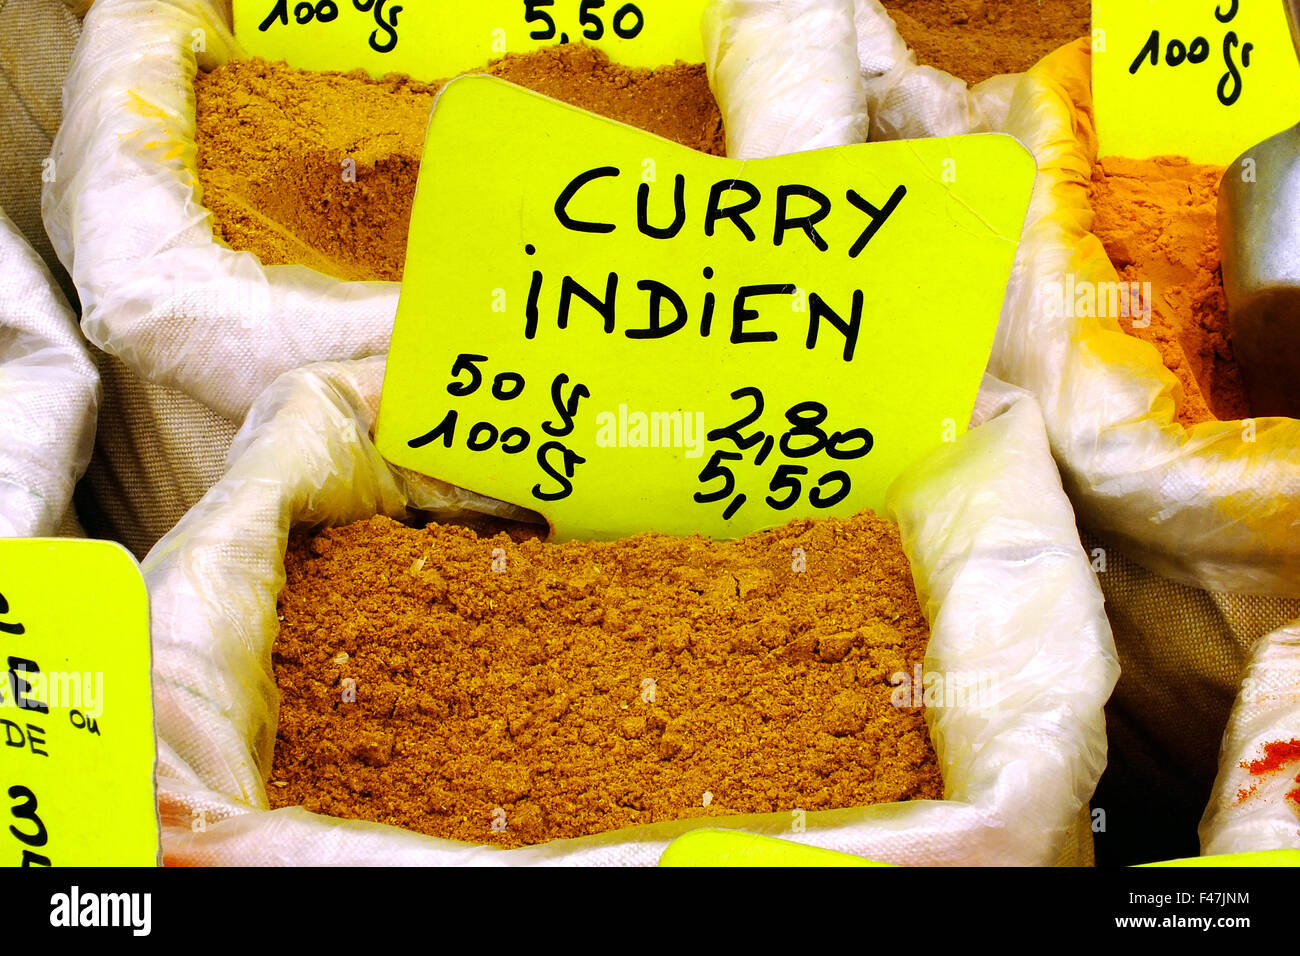 100gr 5,50
100gr
CURRY
iNDiEN
50 gr 2,80
100gr 5,50
DE
ou
3
alamy
Image ID: F47JNM
www.alamy.com